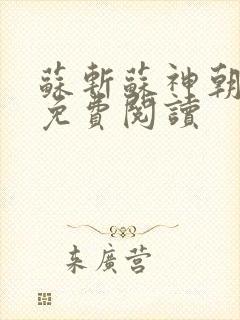 蘇斬蘇神朝
免費閱讀
来廣营